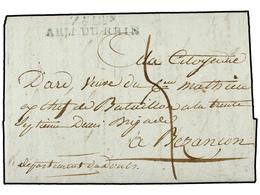 ARM. DU RHIN
a la Citoyenne
Dard Veuve du Cen Mathieu
ex chef de Bataillon a la trente
septieme Demi Brigade
a Bezançon
departement du Doubs